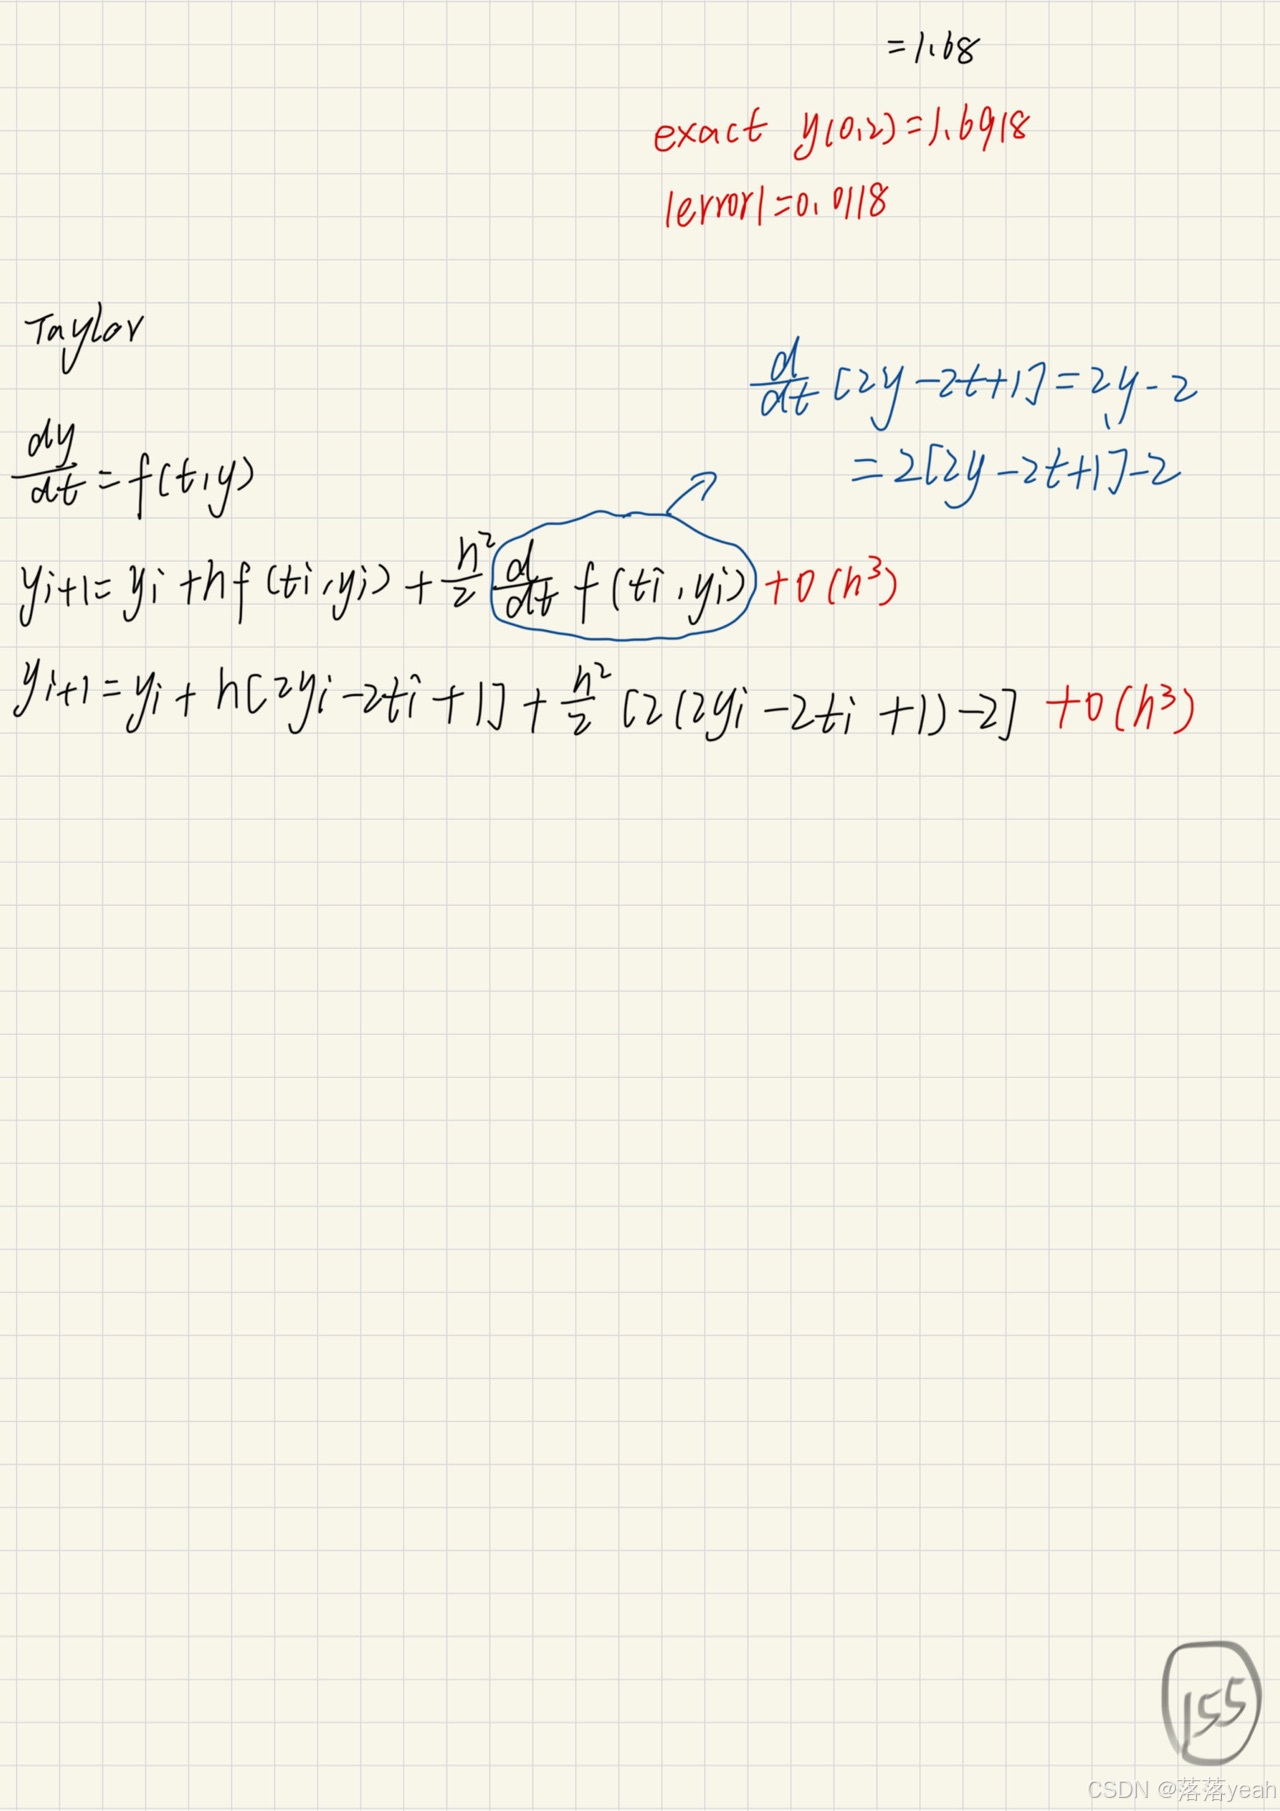 =1.68
exact y(0.2)=1.6918
|error|=0.0118
Taylor
d/dt [2y-2t+1]=2y'-2
dy/dt=f(t,y)
=2[2y-2t+1]-2
yi+1=yi+hf(ti,yi)+h²/2 d/dt f(ti,yi)+O(h³)
yi+1=yi+h[2yi-2ti+1]+h²/2 [2(2yi-2ti+1)-2] +O(h³)
155
CSDN @落落yeah